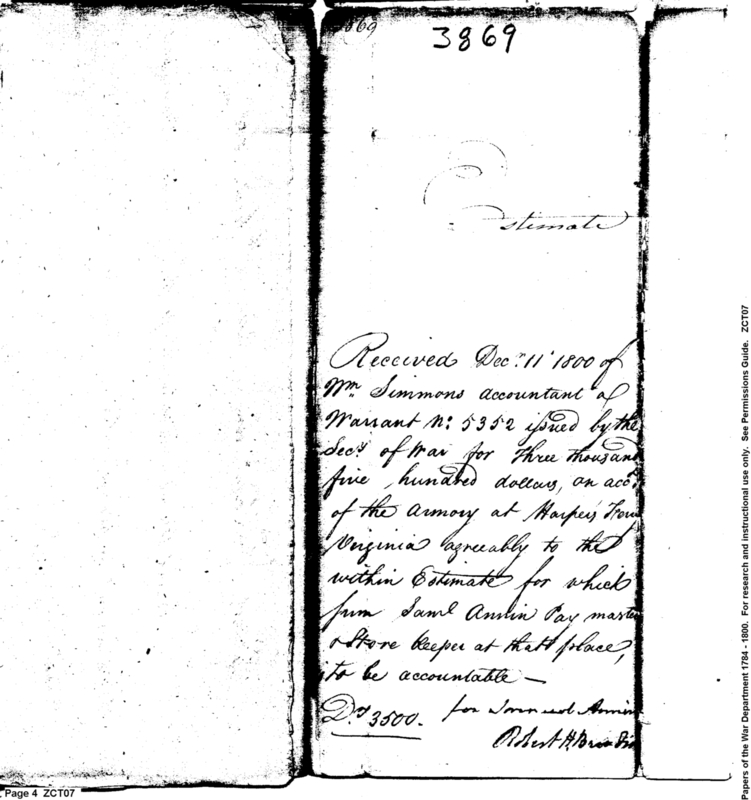 869
3869
Estimate
Received Decr. 11 1800 of
Wm Simmons accountant a
Warrant No: 5352 issued by the
Secy of War for Three thousand
five hundred dollars, on acct
of the Armory at Harper's
Virginia agreeably to the
within Estimate for which
sum Saml Annin Pay master
& Store keeper at that place,
to be accountable —
Ds 3500. for Samuel Annin
Robert H.
Page 4 ZCT07
Papers of the War Department 1784 - 1800. For research and instructional use only. See Permissions Guide. ZCT07